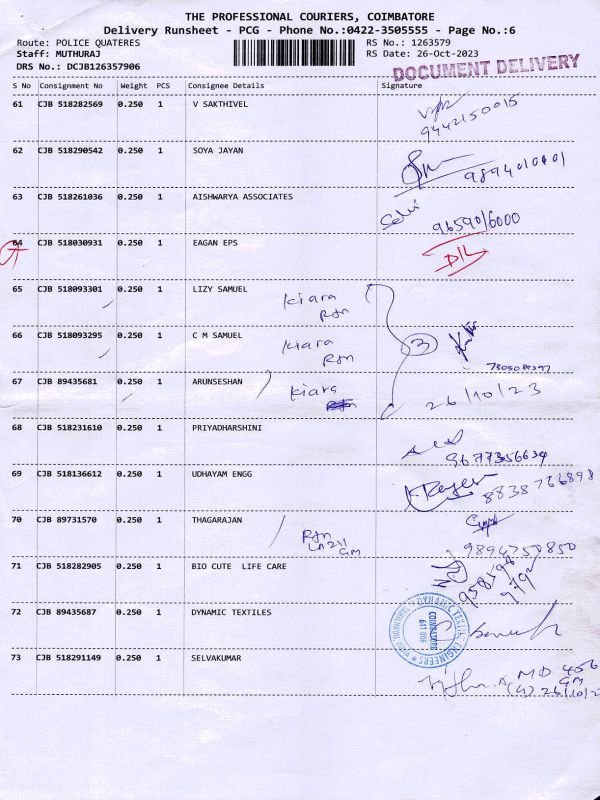 THE PROFESSIONAL COURIERS, COIMBATORE
Delivery Runsheet - PCG - Phone No.:0422-3505555 - Page No.:6
Route: POLICE QUATERES RS No.: 1263579
Staff: MUTHURAJ RS Date: 26-Oct-2023
DRS No.: DCJB126357906
DOCUMENT DELIVERY
S No Consignment No Weight PCS Consignee Details Signature
61 CJB 518282569 0.250 1 V SAKTHIVEL
9442150015
62 CJB 518290542 0.250 1 SOYA JAYAN
63 CJB 518261036 0.250 1 AISHWARYA ASSOCIATES
9659016000
64 CJB 518030931 0.250 1 EAGAN EPS
D/L
65 CJB 518093301 0.250 1 LIZY SAMUEL
Kiara
RSN
66 CJB 518093295 0.250 1 C M SAMUEL
Kiara
RSN
3
67 CJB 89435681 0.250 1 ARUNSESHAN
Kiara
26/10/23
68 CJB 518231610 0.250 1 PRIYADHARSHINI
9677356634
69 CJB 518136612 0.250 1 UDHAYAM ENGG
8838766898
70 CJB 89731570 0.250 1 THAGARAJAN
9894750850
71 CJB 518282905 0.250 1 BIO CUTE LIFE CARE
72 CJB 89435687 0.250 1 DYNAMIC TEXTILES
COIMBATORE
73 CJB 518291149 0.250 1 SELVAKUMAR